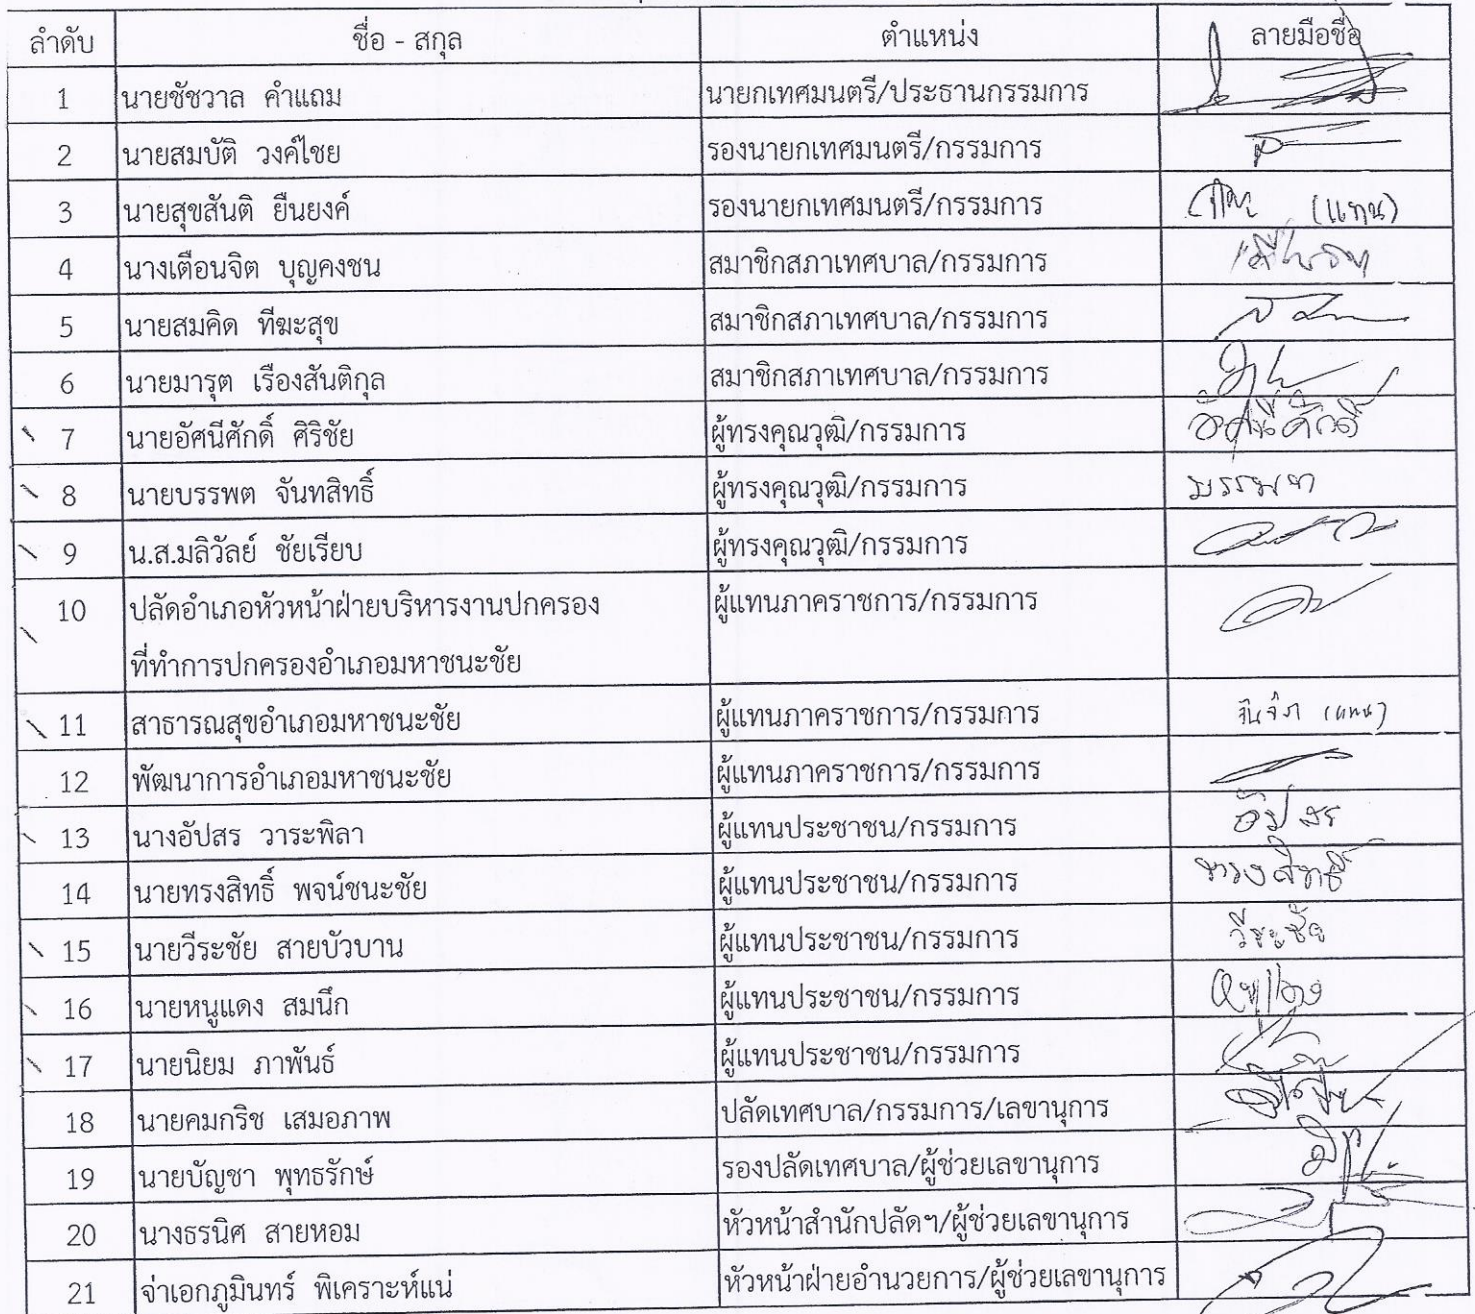 ลำดับ ชื่อ - สกุล ตำแหน่ง ลายมือชื่อ
1 นายชัชวาล คำแถม นายกเทศมนตรี/ประธานกรรมการ
2 นายสมบัติ วงค์ไชย รองนายกเทศมนตรี/กรรมการ
3 นายสุขสันติ ยืนยงค์ รองนายกเทศมนตรี/กรรมการ (แทน)
4 นางเตือนจิต บุญคงชน สมาชิกสภาเทศบาล/กรรมการ
5 นายสมคิด ทีฆะสุข สมาชิกสภาเทศบาล/กรรมการ
6 นายมารุต เรืองสันติกุล สมาชิกสภาเทศบาล/กรรมการ
7 นายอัศนีศักดิ์ ศิริชัย ผู้ทรงคุณวุฒิ/กรรมการ อัศนีศักดิ์
8 นายบรรพต จันทสิทธิ์ ผู้ทรงคุณวุฒิ/กรรมการ บรรพต
9 น.ส.มลิวัลย์ ชัยเรียบ ผู้ทรงคุณวุฒิ/กรรมการ
10 ปลัดอำเภอหัวหน้าฝ่ายบริหารงานปกครอง ผู้แทนภาคราชการ/กรรมการ
ที่ทำการปกครองอำเภอมหาชนะชัย
11 สาธารณสุขอำเภอมหาชนะชัย ผู้แทนภาคราชการ/กรรมการ (แทน)
12 พัฒนาการอำเภอมหาชนะชัย ผู้แทนภาคราชการ/กรรมการ
13 นางอัปสร วาระพิลา ผู้แทนประชาชน/กรรมการ อัปสร
14 นายทรงสิทธิ์ พจน์ชนะชัย ผู้แทนประชาชน/กรรมการ ทรงสิทธิ์
15 นายวีระชัย สายบัวบาน ผู้แทนประชาชน/กรรมการ วีระชัย
16 นายหนูแดง สมนึก ผู้แทนประชาชน/กรรมการ หนูแดง
17 นายนิยม ภาพันธ์ ผู้แทนประชาชน/กรรมการ
18 นายคมกริช เสมอภาพ ปลัดเทศบาล/กรรมการ/เลขานุการ
19 นายบัญชา พุทธรักษ์ รองปลัดเทศบาล/ผู้ช่วยเลขานุการ
20 นางธรนิศ สายหอม หัวหน้าสำนักปลัดฯ/ผู้ช่วยเลขานุการ
21 จ่าเอกภูมินทร์ พิเคราะห์แน่ หัวหน้าฝ่ายอำนวยการ/ผู้ช่วยเลขานุการ